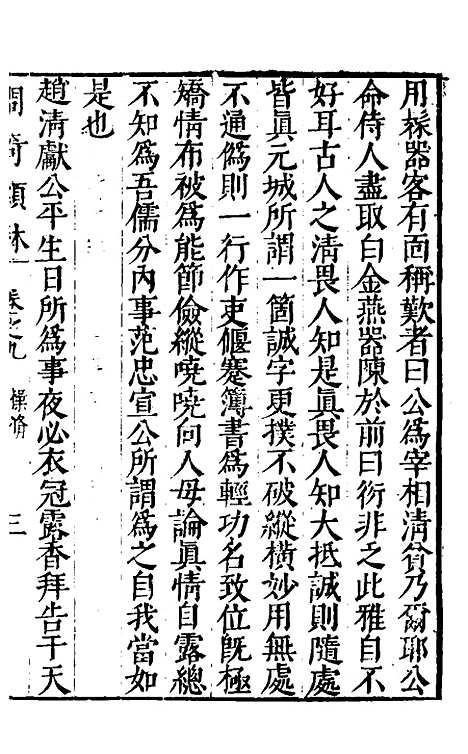 用槑器客有面稱歎者曰公為宰相清貧乃爾耶公
命侍人盡取白金燕器陳於前曰衍非乏此雅自不
好耳古人之清畏人知是眞畏人知大抵誠則隨處
皆眞元城所謂一箇誠字更撲不破縱橫妙用無處
不通為則一行作吏偃蹇簿書為輕功名致位旣極
矯情布被為能節儉縱嘵嘵向人毋論眞情自露總
不知為吾儒分內事范忠宣公所謂為之自我當如
是也
趙清獻公平生日所為事夜必衣冠露香拜告于天
問奇類林 卷之九 操脩 三